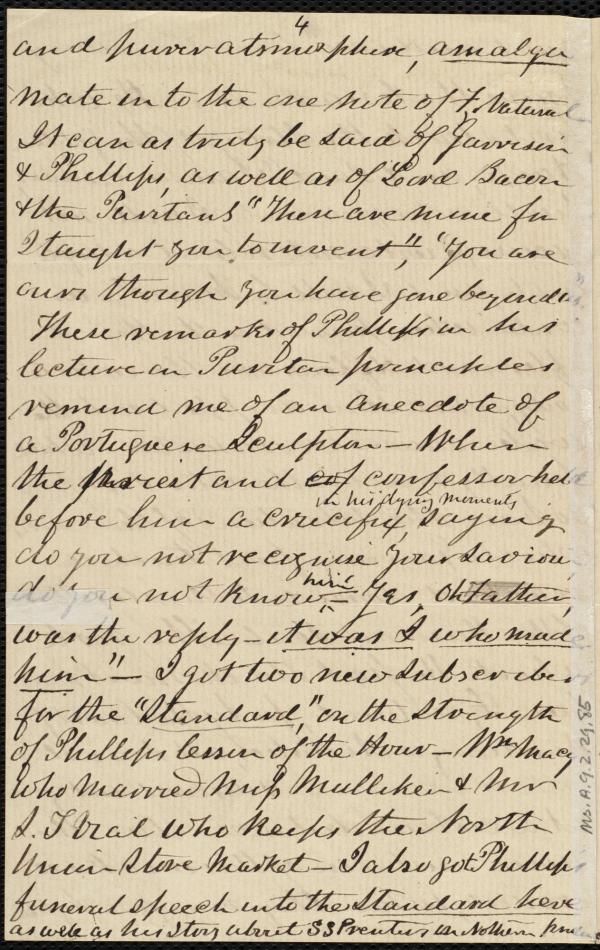 4
and purer atmosphere, amalga
mate in to the one note of F. Natural
It can as truly be said of Garrison
& Phillips, as well as of Lord Bacon
& the Puritans "These are mine for
I taught you to invent", "You are
ours though you have gone beyond us"
These remarks of Phillips in his
lecture on Puritan principles
remind me of an anecdote of
a Portuguese Sculptor – When
the Priest and cof confessor held
in his dying moments
before him a crucifix, saying
do you not recognise your Saviour,
do you not know him – Yes, Oh Father,
was the reply – it was I who made
him" – I got two new Subscribers
for the "Standard," on the strength
of Phillips lesson of the Hour – Wm Macy
who married Miss Mulliken & Mr
who keeps the North
Union Store Market – I also got Phillips
funeral speech into the Standard here
as well as his Story about S S Prentiss in Northern
Ms. A. 9. 2. 29, 85